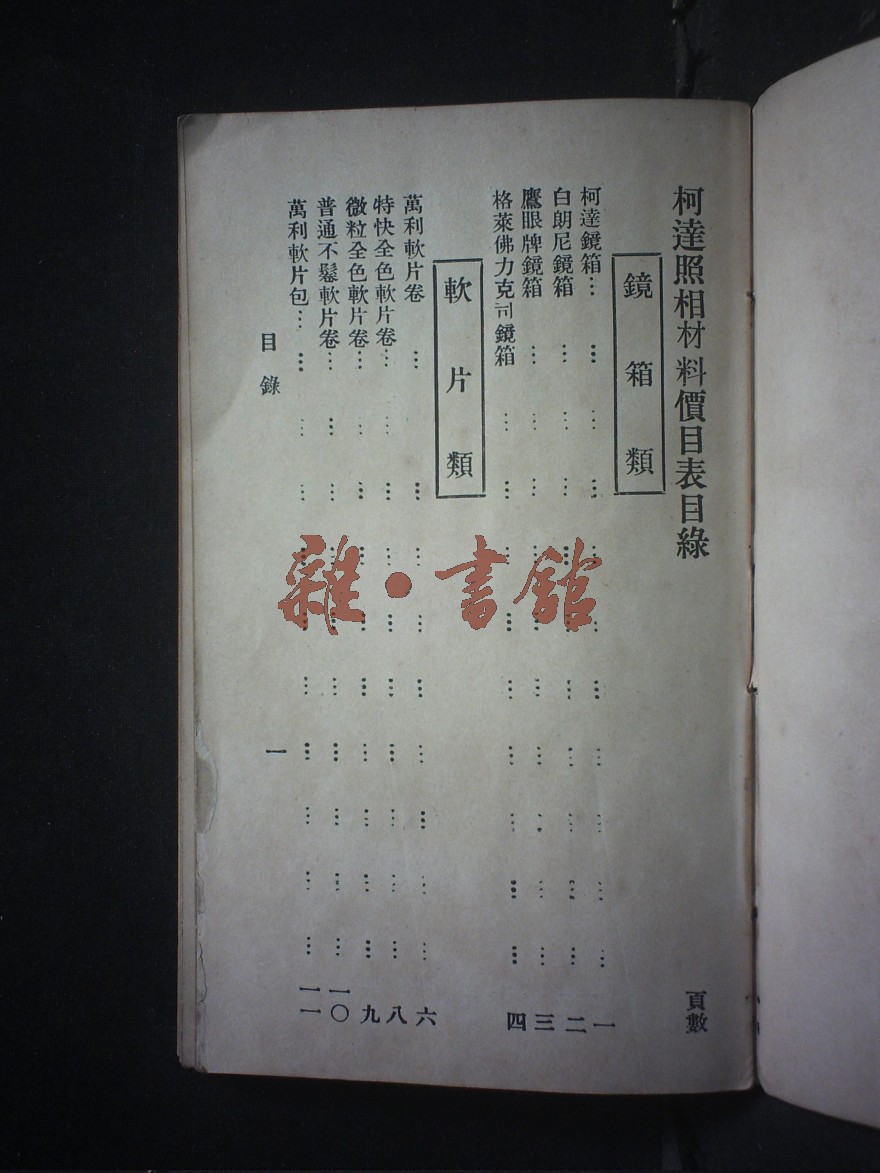 柯達照相材料價目表目錄
頁數
鏡箱類
柯達鏡箱…………………………………一
白朗尼鏡箱…………………………………二
鷹眼牌鏡箱…………………………………三
格萊佛力克司鏡箱…………………………………四
軟片類
萬利軟片卷…………………………………六
特快全色軟片卷…………………………………八
微粒全色軟片卷…………………………………九
普通不鬈軟片卷…………………………………一〇
萬利軟片包…………………………………一一
目錄
一
雜·書館